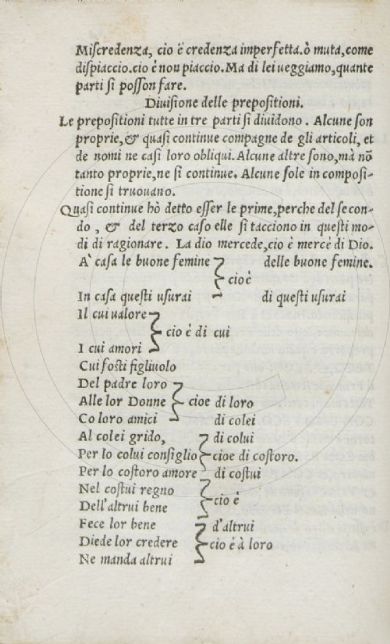 Miscredenza, cio è credenza imperfetta. ò muta, come
dispiaccio. cio è non piaccio. Ma di lei ueggiamo, quante
parti si posson fare.
Diuisione delle prepositioni.
Le prepositioni tutte in tre parti si diuidono. Alcune son
proprie, & quasi continue compagne de gli articoli, et
de nomi ne casi loro obliqui. Alcune altre sono, mà nõ
tanto proprie, ne si continue. Alcune sole in composi-
tione si truouano.
Quasi continue hò detto esser le prime, perche del secon-
do, & del terzo caso elle si tacciono in questi mo-
di di ragionare. La dio mercede, cio è mercè di Dio.
A` casa le buone femine delle buone femine.
cio è
In casa questi usurai di questi usurai
Il cui valore
cio è di cui
I cui amori
Cui fosti figliuolo
Del padre loro
Alle lor Donne cioe di loro
Co loro amici di colei
Al colei grido, di colui
Per lo colui consiglio cioe di costoro.
Per lo costoro amore di costui
Nel costui regno
cio è
Dell'altrui bene
Fece lor bene d'altrui
Diede lor credere cio è à loro
Ne manda altrui